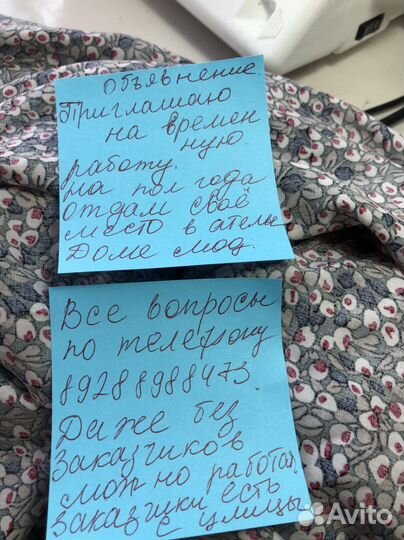 Объявнение.
Приглашаю
на времен
ную.
работу.
на пол года
отдам своё
место в ателье
Доме мод.
Все вопросы
по телефону
89288988473.
Даже без
Заказчиков
можно работат.
Заказчики есть
с улицы
Avito